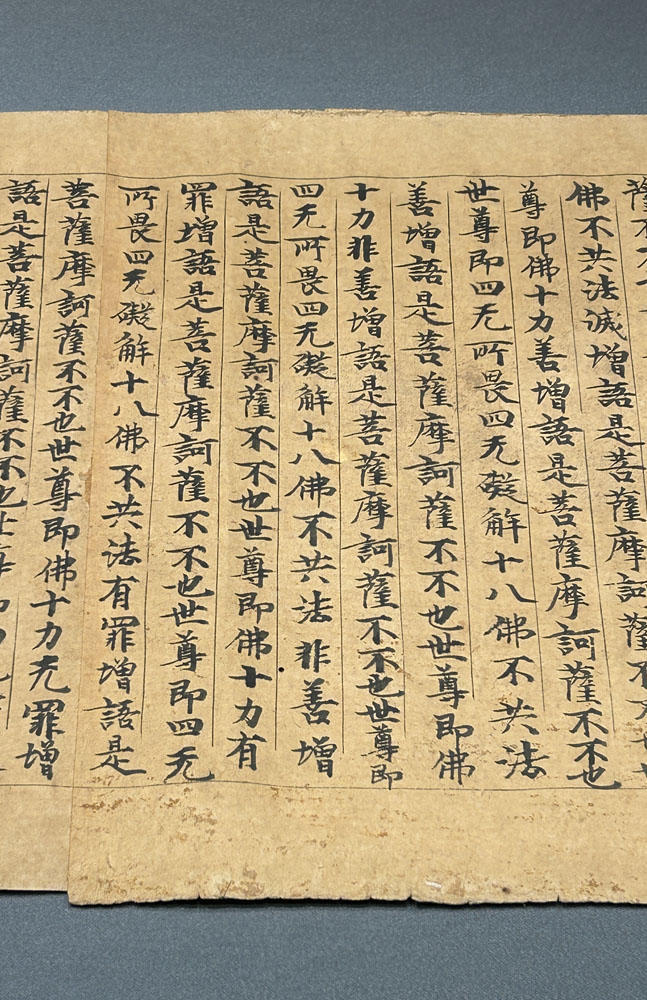 薩不
佛不共法滅增語是菩薩摩訶薩不不也世
尊即佛十力善增語是菩薩摩訶薩不不也
世尊即四无所畏四无礙解十八佛不共法
善增語是菩薩摩訶薩不不也世尊即佛
十力非善增語是菩薩摩訶薩不不也世尊即
四无所畏四无礙解十八佛不共法非善增
語是菩薩摩訶薩不不也世尊即佛十力有
罪增語是菩薩摩訶薩不不也世尊即四无
所畏四无礙解十八佛不共法有罪增語是
菩薩摩訶薩不不也世尊即佛十力无罪增
語是菩薩摩訶薩不不也世